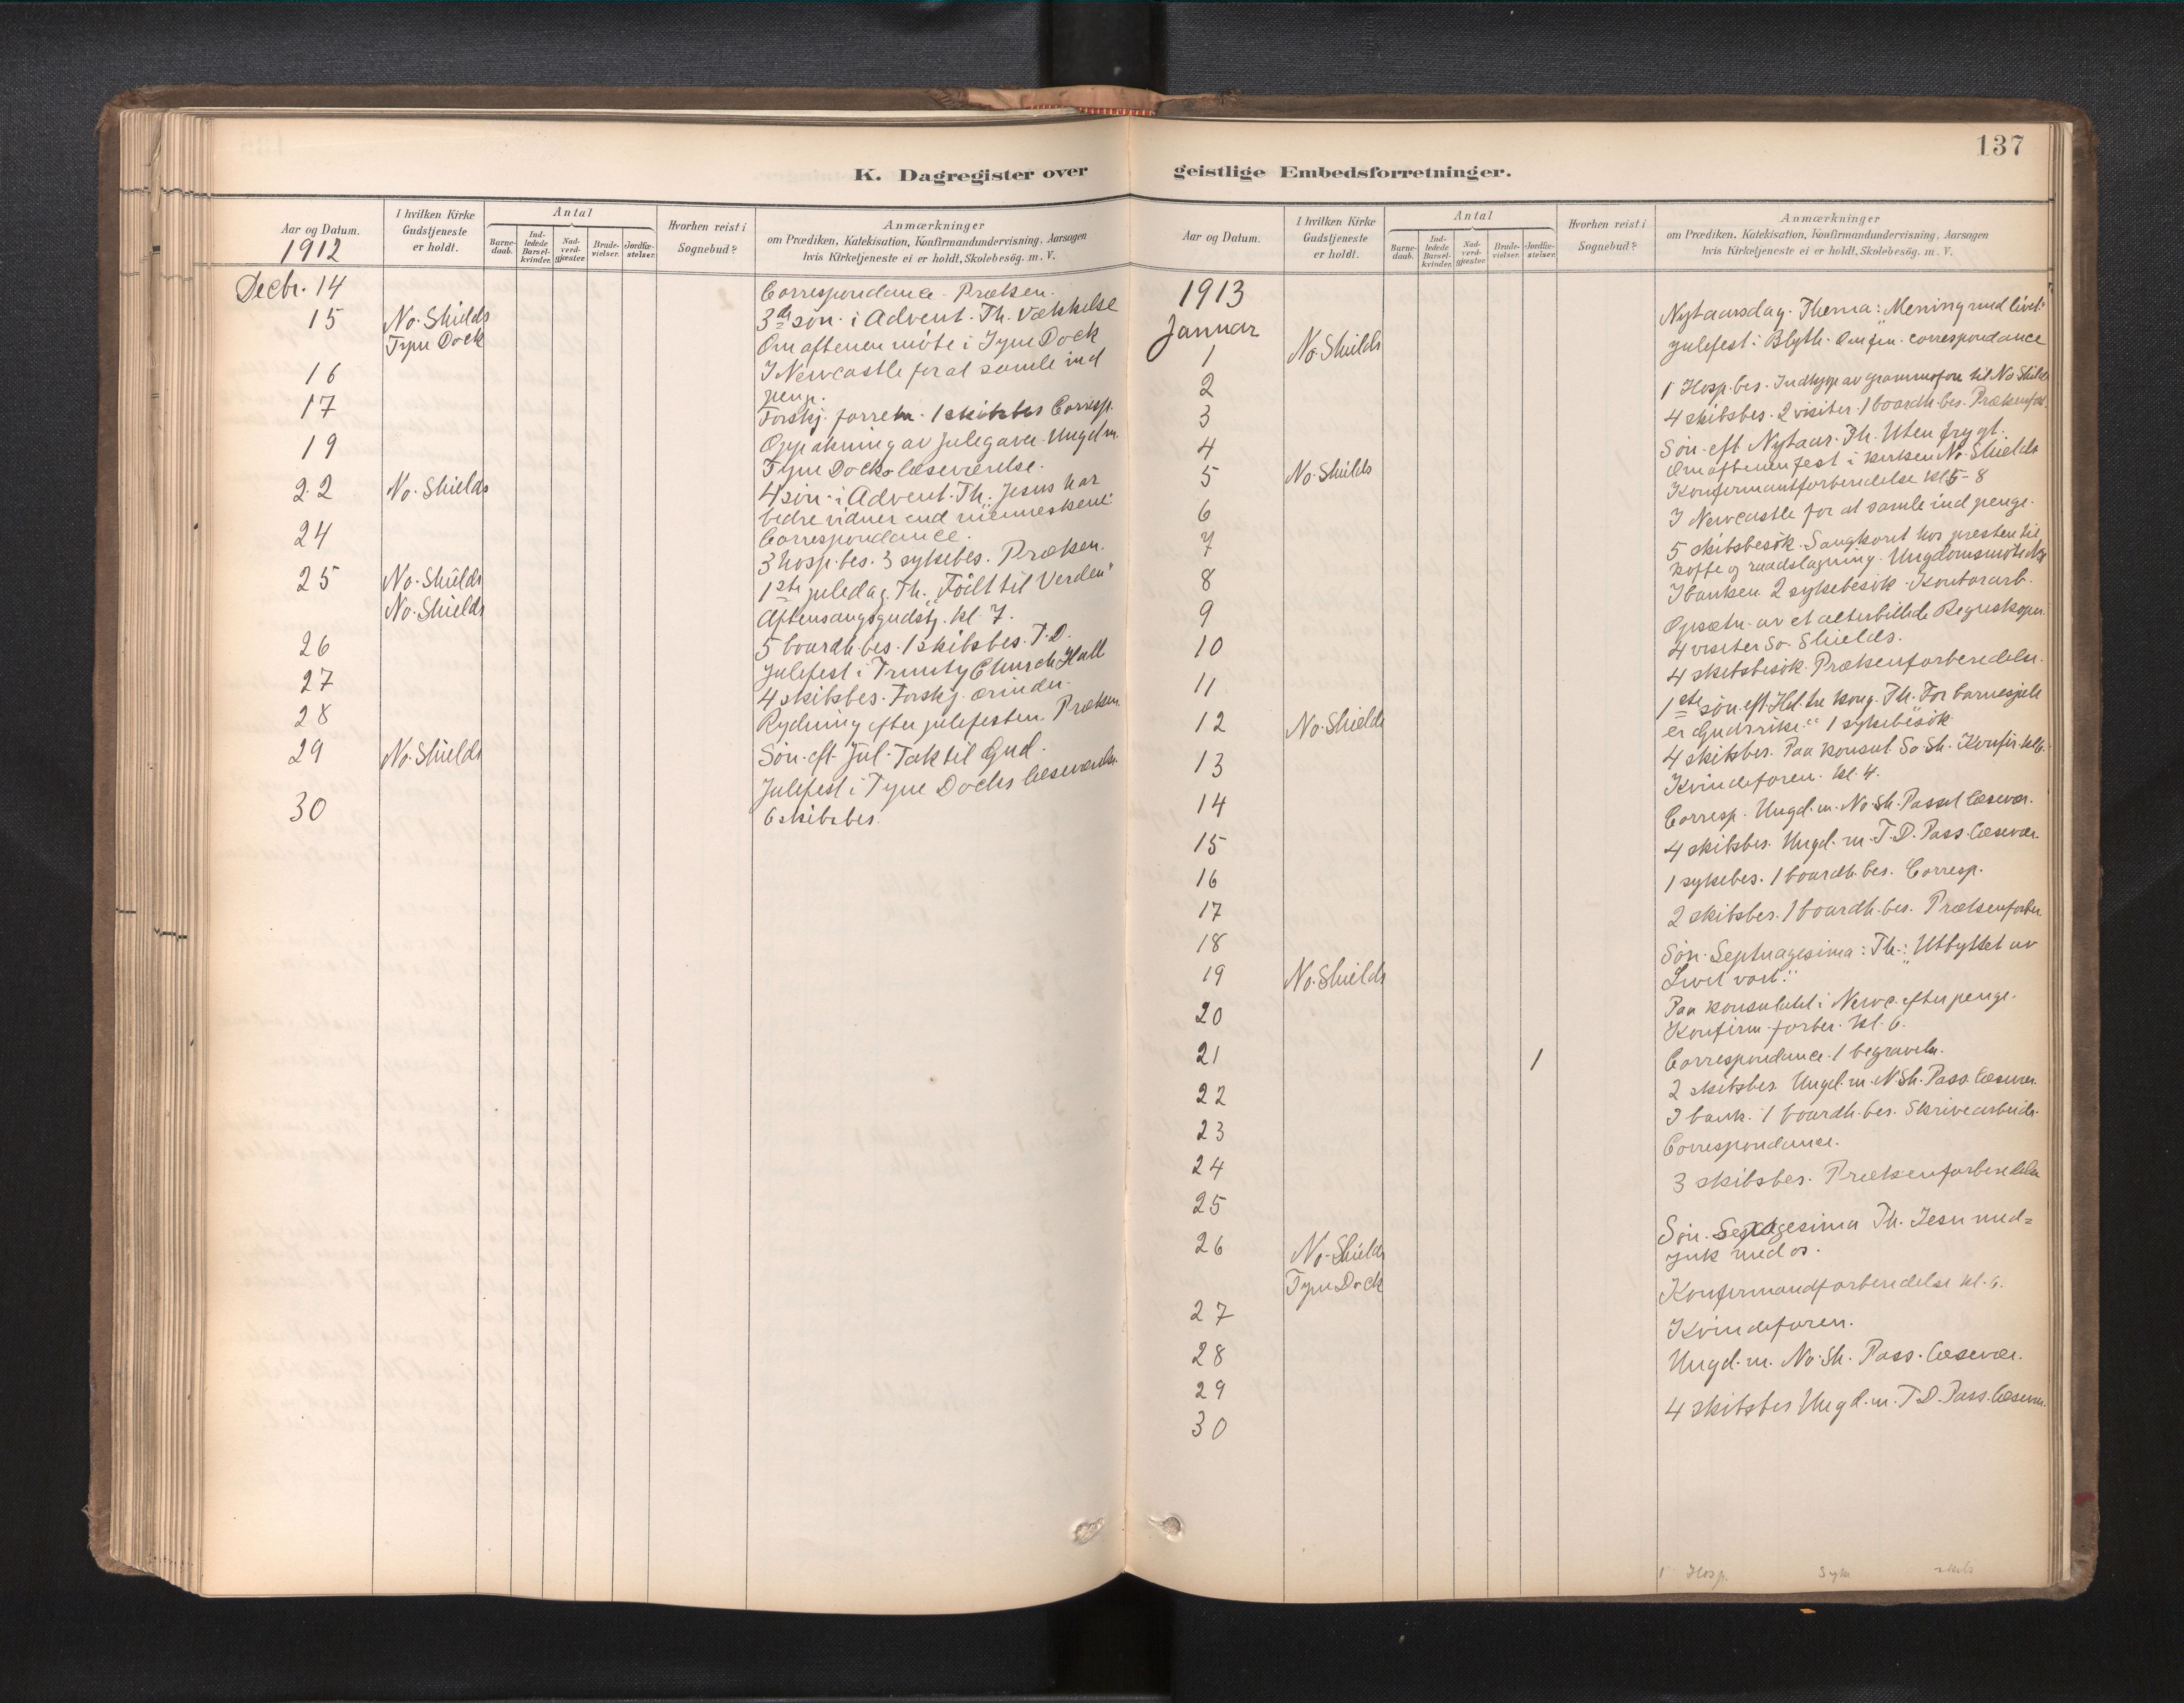 K. Dagregister over
Aar og Datum.
1912
I hvilken Kirke Gudstjeneste er holdt.
Antal
Barne-daab.
Ind-ledede Barsel-kvinder.
Nad-verd-gjæster.
Brude-vielser.
Jordfæ-stelser.
Hvorhen reist i Sognebud?
Anmærkninger
om Prædiken, Katekisation, Konfirmandundervisning, Aarsagen
hvis Kirketjeneste ei er holdt, Skolebesög. m. V.
Decbr. 14 Correspondance. Præken.
15 No. Shields 3die søn. i Advent. Th. Vækkelse
Tyne Dock Om aftenen møte i Tyne Dock
16 I Newcastle for at samle ind
peng.
17 Forskj. forretn. 1 skibsbes. Corresp.
19 Oppakning av julegaver. Ungd.m.
Tyne Docks læseværelse.
22 No. Shields 4 søn. i Advent. Th. Jesus har
bedre vidner end menneskene"
24 Correspondance.
3 hosp. bes. 3 sykebes. Præken.
25 No. Shields 1ste juledag. Th. "Født til Verden"
No. Shields Aftensangsgudstj. kl. 7.
26 5 boardh. bes. 1 skibsbes. T.D.
Julefest i Trinity Church Hall
27 4 skibsbes. Forskj. ærinder.
28 Rydning efter julefesten. Præken.
29 No. Shields Søn. eft. Jul. Tak til Gud.
Julefest i Tyne Docks læseværelse.
30 6 skibsbes.
137
geistlige Embedsforretninger.
Aar og Datum.
I hvilken Kirke Gudstjeneste er holdt.
Antal
Barne-daab.
Ind-ledede Barsel-kvinder.
Nad-verd-gjæster.
Brude-vielser.
Jordfæ-stelser.
Hvorhen reist i Sognebud?
Anmærkninger
om Prædiken, Katekisation, Konfirmandundervisning, Aarsagen
hvis Kirketjeneste ei er holdt, Skolebesög. m. V.
1913
Januar
1 No. Shields Nytaarsdag. Thema: Mening med livet."
Julefest i Blyth. correspondance
2 1 Hosp. bes. Indkjøp av grammofon til No. Shields
3 4 skibsbes. 2 visiter. 1 boardh. bes. Prækenforb.
4
5 No. Shields Søn. eft. Nytaar. Th. Uten frygt.
Om aftenen fest i kirken No. Shields
6 Konfirmantforberedelse kl 5-8
I Newcastle for at samle ind penge.
7 5 skibsbesøk. Sangkoret hos presten til
kaffe og raadslagning. Ungdomsmøte
8 I banken. 2 sykebesøk. Kontorarb.
9 Opsætn. av et alterbillede
10 4 visiter So. Shields.
11 4 skibsbesøk. Prækenforberedelse.
12 No. Shields 1ste søn. eft. Hel. tre kong. Th. For barnesjæle
er Gudsrike." 1 sykebesøk.
13 4 skibsbes. Paa konsul. So. Sh. Konfir. kl 6.
Kvindeforen. kl. 4.
14 Corresp. Ungd. m. No. Sh. Passet læsevær.
15 4 skibsbes. Ungd. m. T.D. Pass. læsevær.
16 1 sykebes. 1 boardh. bes. Corresp.
17 2 skibsbes. 1 boardh. bes. Prækenforber.
18
19 No. Shields Søn. Septuagesima: Th.: "Utbyttet av
Livet vort."
20 Paa konsulatet i Newc. efter penge.
Konfirm. forber. kl. 6.
21 1 Correspondance. 1 begravelse.
22 2 skibsbes. Ungd. m. N. Sh. Pass. læsevær.
23 I bank. 1 boardh. bes. Skrivearbeide.
24 Correspondance.
25 3 skibsbes. Prækenforberedelse
26 No. Shields Søn. Sexagesima Th. Jesu med=
Tyne Dock ynk med os.
27 Konfirmandforberedelse kl. 6.
28 Kvindeforen.
29 Ungd. m. No. Sh. Pass. læsevær.
30 4 skibsbes Ungd. m. T.D. Pass. læsevær.
1 Hosp. Syke skibs